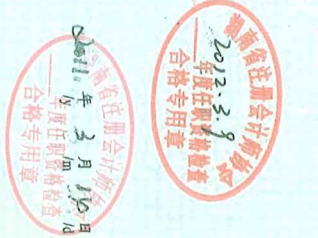 湖南省注册会计师协会
2012.3.9
年度任职资格检查
合格专用章
湖南省注册会计师协会
2011年3月10日
年度任职资格检查
合格专用章
/y /m /d